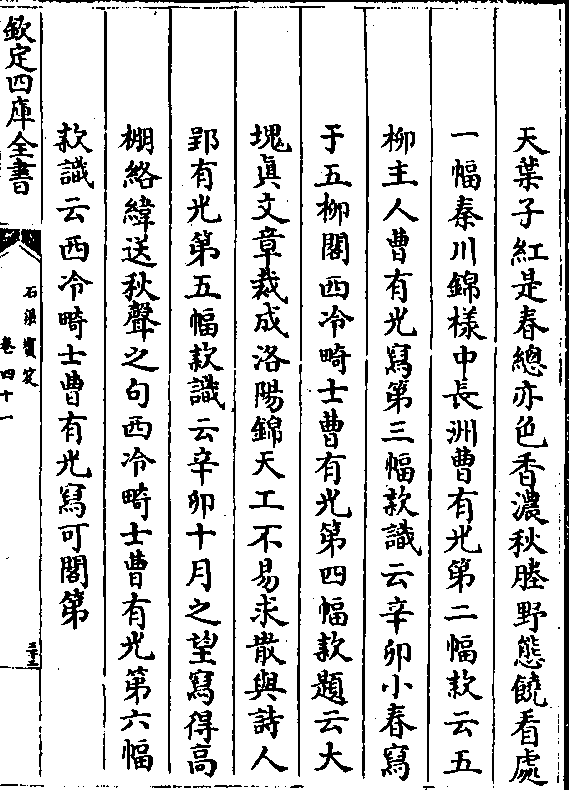 天葉子紅是春總亦色香濃秋塍野態饒看處
一幅秦川錦樣中長洲曹有光第二幅款云五
柳主人曹有光寫第三幅款識云辛卯小春寫
于五柳閣西冷畸士曹有光第四幅款題云大
塊眞文章裁成洛陽錦天工不易求散與詩人
郢有光第五幅款識云辛卯十月之望寫得高
棚絡緯送秋聲之句西冷畸士曹有光第六幅
款識云西冷畸士曹有光寫可閣第
欽定四庫全書
石渠寶笈
卷四十一
三十三